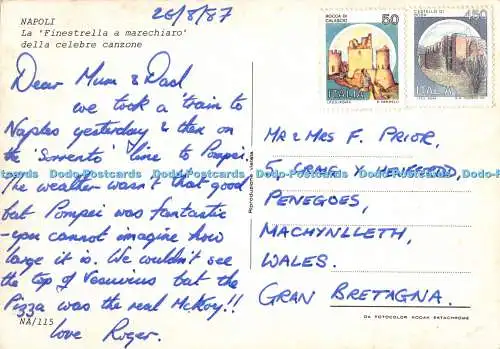 26/8/87
NAPOLI
La 'Finestrella a marechiaro'
della celebre canzone
Dear Mum & Dad
we took a train to
Naples yesterday & then on
the 'Sorrento' line to Pompei.
The weather wasn't that good
but Pompei was fantastic
- you cannot imagine how
large it is. We couldn't see
the top of Vesuvius but the
Pizza was the real McKoy!!
love Roger.
NA/115
ROCCA DI
CALASCIO
50
ITALIA
450
ITALIA
MR & MRS F. PRIOR,
PENEGOES,
MACHYNLLETH,
WALES.
GRAN BRETAGNA.
DA FOTOCOLOR KODAK EKTACHROME
Dodo-Postcards Dodo-Postcards Dodo-Postcards Dodo-Postcards